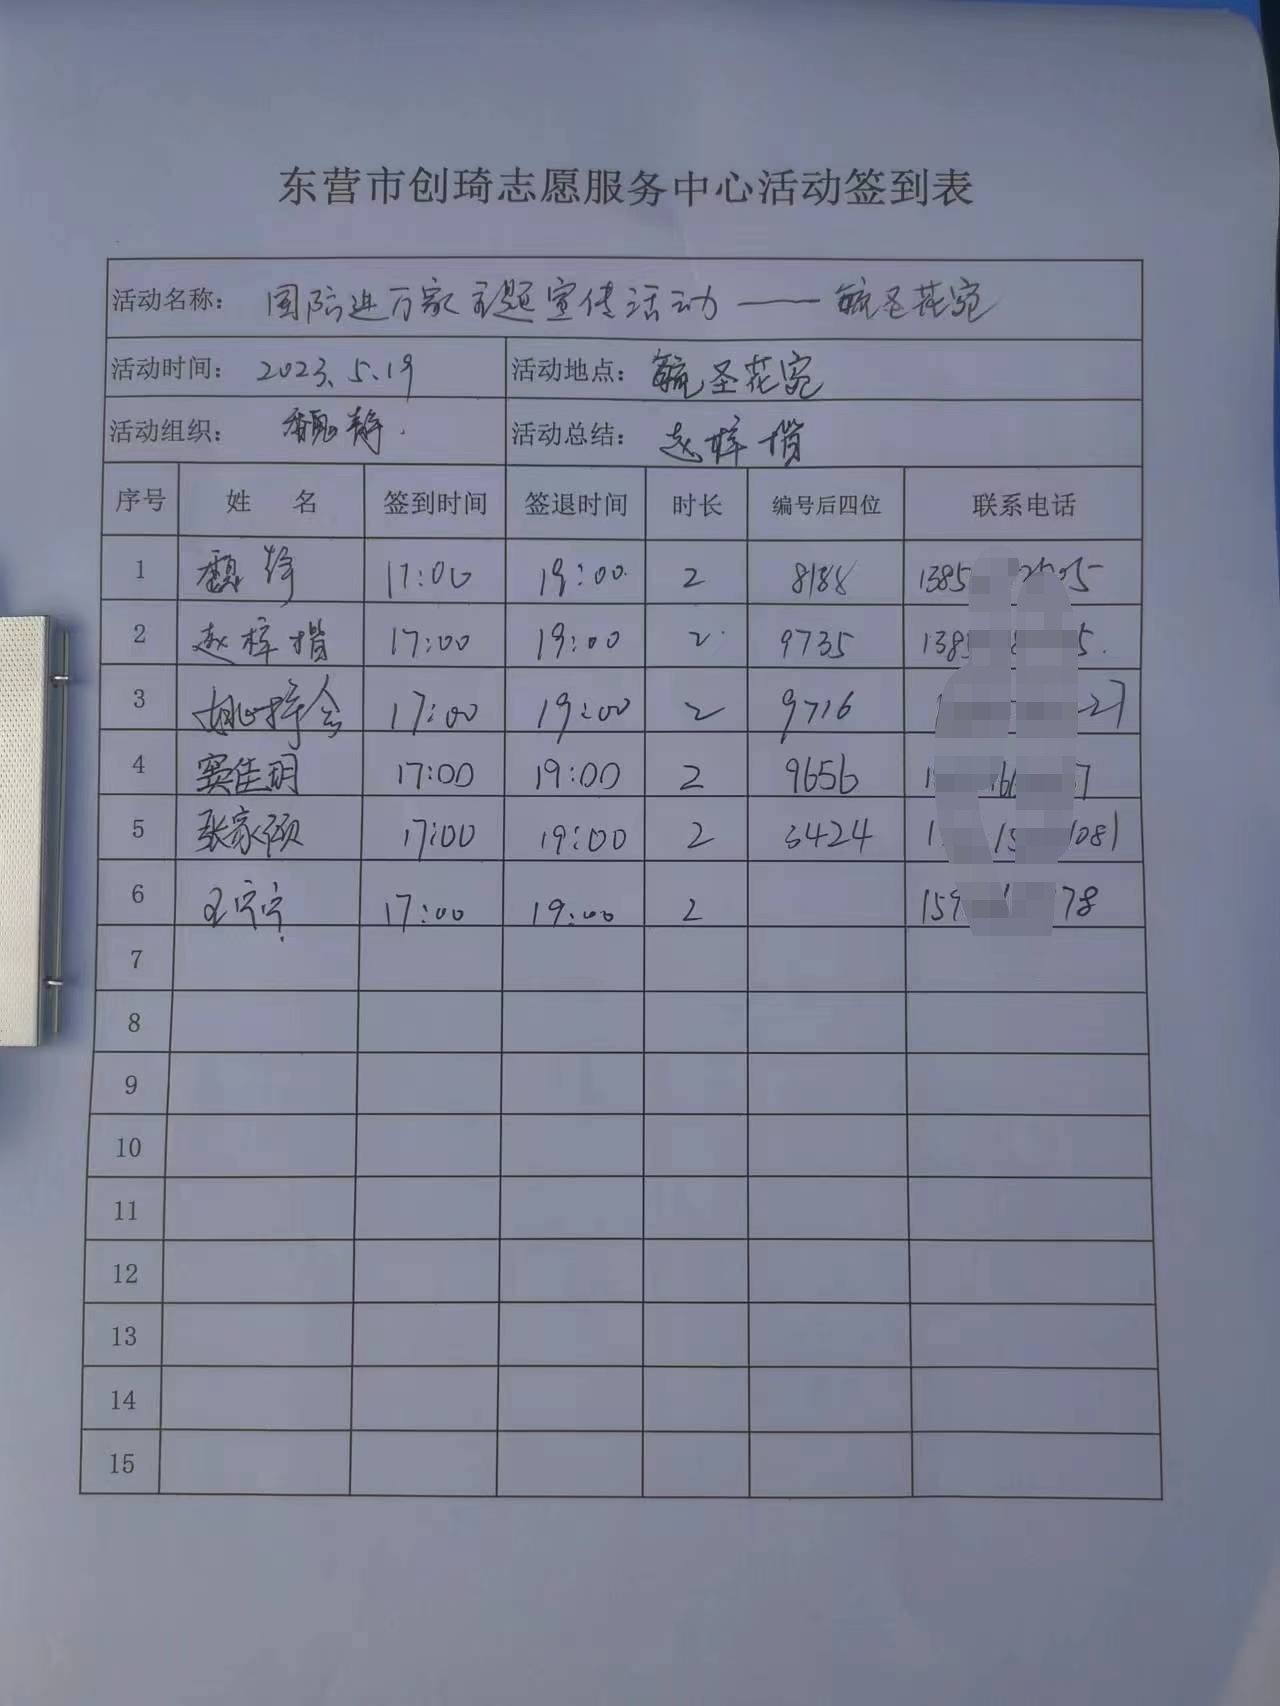 东营市创琦志愿服务中心活动签到表
活动名称： 国防进万家主题宣传活动——毓圣花苑
活动时间： 2023.5.19 活动地点： 毓圣花苑
活动组织： 魏静 活动总结： 赵梓楷
序号 姓 名 签到时间 签退时间 时长 编号后四位 联系电话
1 魏静 17:00 19:00 2 8188 1385
2 赵梓楷 17:00 19:00 2 9735 1385 5
3 17:00 19:00 2 9716 27
4 窦佳玥 17:00 19:00 2 9656 7
5 张家硕 17:00 19:00 2 3424 1081
6 王宁宁 17:00 19:00 2 159 78
7
8
9
10
11
12
13
14
15